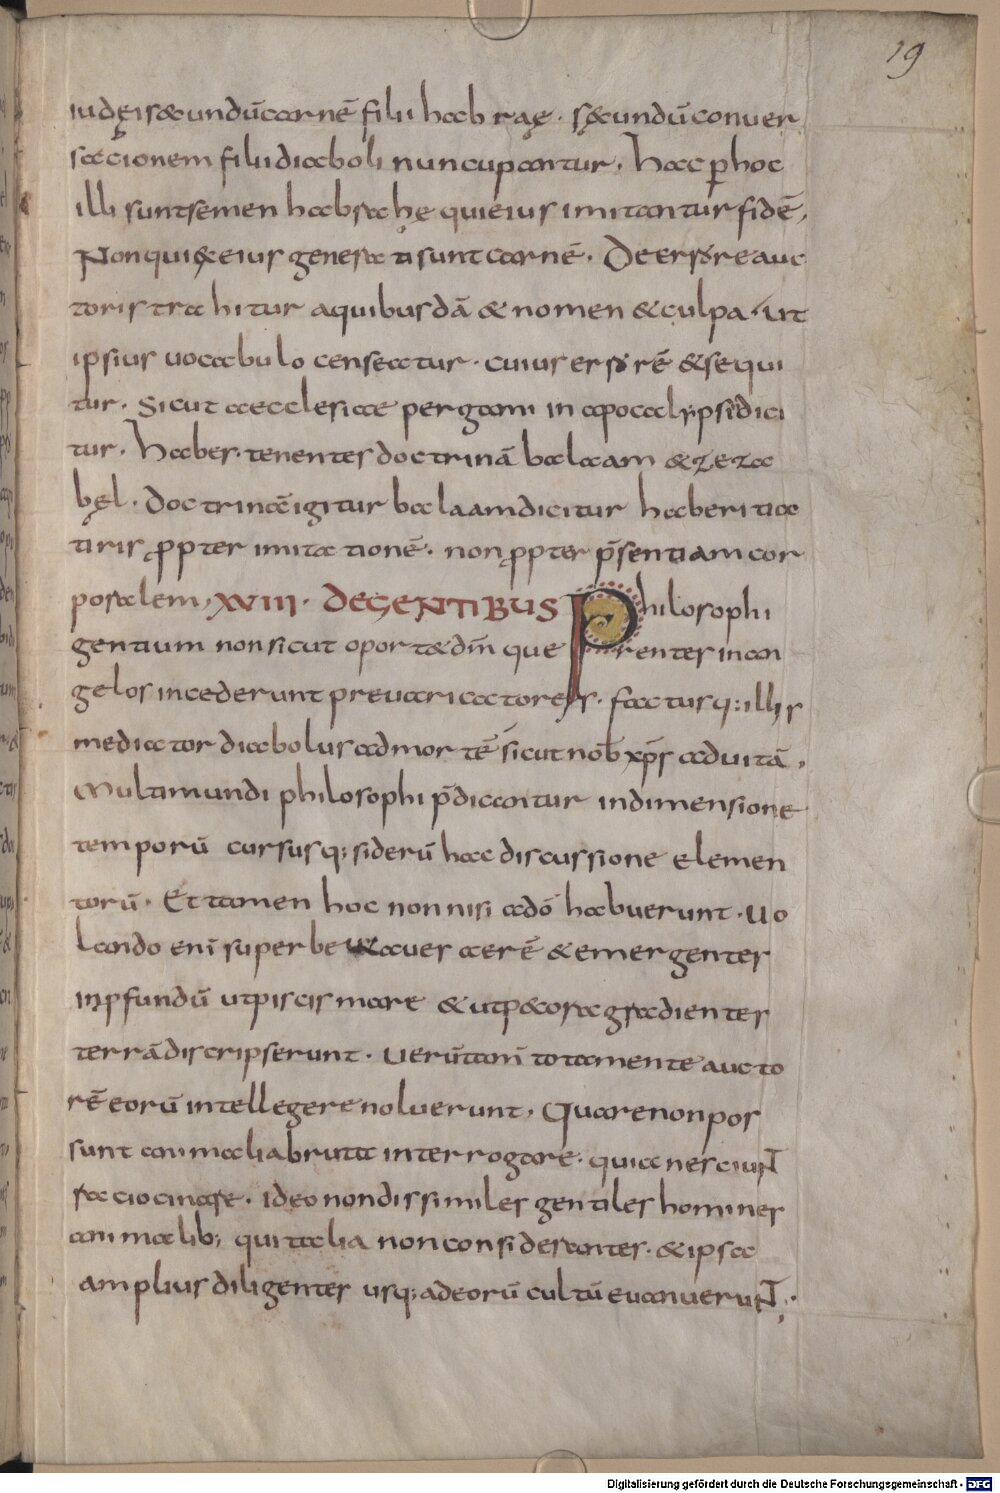 19
iudęis&undū carnē filii habrae. sęcundū conuer
sacionem filii diaboli nuncupantur. hac p hoc
illi sunt semen habrahę qui eius imitantur fidē,
Non qui ex eius generati sunt carnē. De errore auc
toris trahitur a quibusdā & nomen & culpa. ut
ipsius uocabulo censeatur. cuius errorē & sequi
tur. Sicut aecclesiae pergami in apocalypsi dici
tur. Haber tenenter doctrinā balaam & zeza
bęl. doctrinā igitur balaam dicitur haberi tia
tiris ppter imitationē. non ppter psentiam cor
poralem, XVIII. DE GENTIBUS Philosophi
gentium non sicut oport& dm̄ que renter in an
gelos incederunt preuaricatores. factusq; illis
mediator diabolus ad mortē sicut nob xp̄s ad uitā,
Multi mundi philosophi p̄dicantur in dimensione
temporū cursusq; siderū hac discussione elemen
torū. Et tamen hoc non nisi a dō habuerunt. Uo
lando enī superbe aues aerē & emergentes
in pfundū ut piscis mare & ut pecora gradientes
terrā discripserunt. Uerūtam tota mente aucto
rē eorū intellegere noluerunt, Quare non pos
sunt animalia bruta interrogare. quia nesciunt
raciocinare. Ideo non dissimiles gentiles homines
animalib; qui talia non considerantes. & ipsa
amplius diligentes usq; ad eorū cultū euanuerunt.
Digitalisierung gefördert durch die Deutsche Forschungsgemeinschaft - DFG